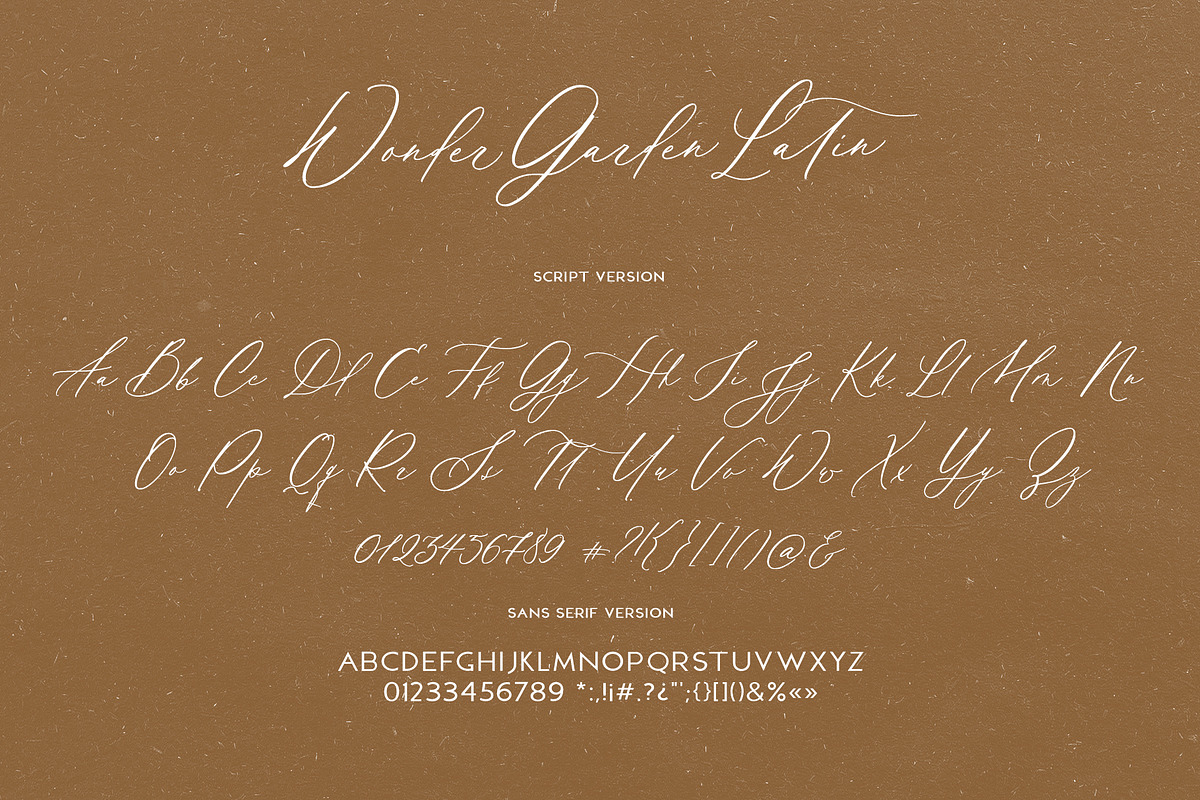 Wonder Garden Latin
SCRIPT VERSION
Aa Bb Cc Dd Ee Ff Gg Hh Ii Jj Kk Ll Mm Nn
Oo Pp Qq Rr Ss Tt Uu Vv Ww Xx Yy Zz
0123456789 #?!{}[]()@&
SANS SERIF VERSION
ABCDEFGHIJKLMNOPQRSTUVWXYZ
01233456789 *:,!¡#.?¿"';{}[]()&%«»